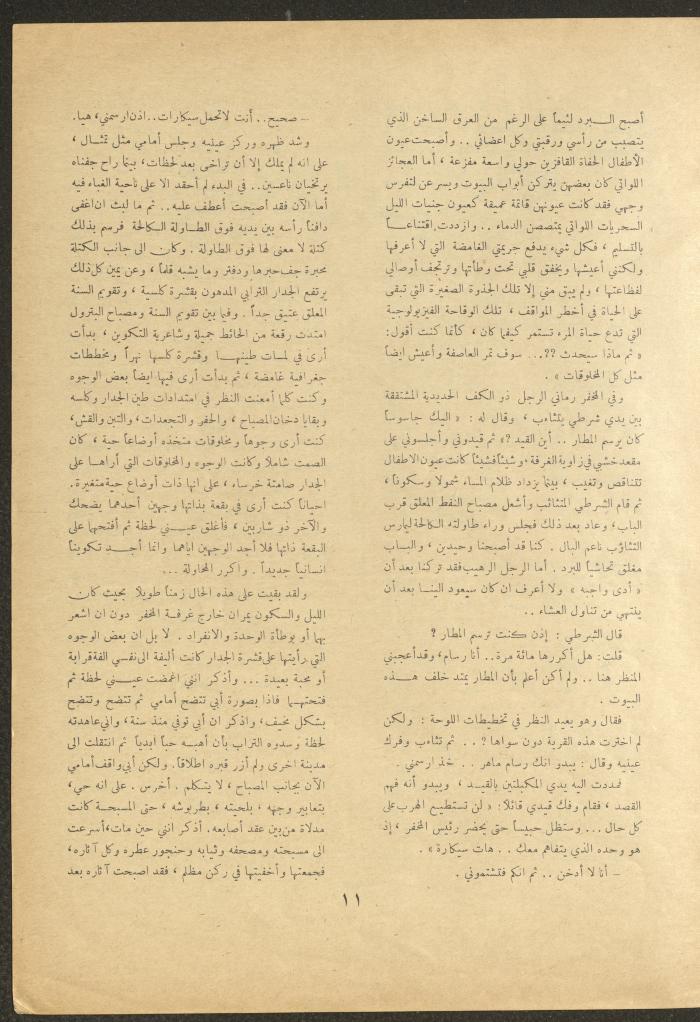 أصبح الـــبرد لئيماً على الرغم من العرق الساخن الذي
يتصبب من رأسي ورقبتي وكل اعضائي .. وأصبحت عيون
الأطفال الحفاة القافزين حولي واسعة مفزعة ، أما العجائز
اللواتي كان بعضهن يتركن أبواب البيوت ويسرعن لتفرس
وجهي فقد كانت عيونهن قاتمة عميقة كعيون جنيات الليل
السحريات اللواتي يمتصصن الدماء .. وازددت اقتناعـــاً
بالتسليم ، فكل شيء يدفع جريمتي الغامضة التي لا أعرفها
ولكنني أعيشها ويخفق قلبي تحت وطأتها وترتجف أوصالي
لفظاعتها ، ولم يبق مني إلا تلك الجذوة الصغيرة التي تبقى
على الحياة في أخطر المواقف ، تلك الوقاحة الفيزيولوجية
التي تدع حياة المرء تستمر كيفما كان ، كأنما كنت أقول:
« ثم ماذا سيحدث ؟؟... سوف تمر العاصفة وأعيش ايضاً
مثل كل المخلوقات » .
وفي المخفر رماني الرجل ذو الكف الحديدية المتشققة
بين يدي شرطي يتثاءب ، وقال له : « اليك جاسوساً
كان يرسم المطار .. أين القيد ؟» ثم قيدوني وأجلسوني على
مقعد خشبي في زاوية الغرفة . وشيئاً فشيئاً كانت عيون الاطفال
تتناقص وتغيب ، بينما يزداد ظلام المساء شمولا وسكوناً ،
ثم قام الشرطي المتثائب وأشعل مصباح النفط المعلق قرب
الباب، وعاد بعد ذلك فجلس وراء طاولته الكالحة ليمارس
التثاؤب ناعم البال . كنا قد أصبحنا وحيدين ، والبــاب
مغلق تحاشياً للبرد . أما الرجل الرهيب فقد تركنا بعد أن
« أدى واجبه » ولا أعرف ان كان سيعود الينــا بعد أن
ينتهي من تناول العشاء ..
قال الشرطي : إذن كنت ترسم المطار ؟
قلت: هل أكررها مائة مرة.. أنا رسام، وقد أعجبني
المنظر هنا .. ولم أكن أعلم بأن المطار يمتد خلف هـــذه
البيوت .
فقال وهو يعيد النظر في تخطيطات اللوحة : ولكن
لم اخترت هذه القرية دون سواها ؟ .. ثم تثاءب وفرك
عينيه وقال : يبدو انك رسام ماهر . . خذ ارسمني .
فمددت اليه يدي المكبلتين بالقيـد ، ويبدو أنه فهم
القصد ، فقام وفك قيدي قائلاً: « لن تستطيــع الهرب على
كل حال ... وستظل حبيساً حتى يحضر رئيس المخفر ، إذ
هو وحده الذي يتفاهم معك .. هات سيكارة » .
ــ أنا لا أدخن .. ثم انكم فتشتموني .
ــ صحيح.. أنت لا تحمل سيكارات.. اذن ارسمني، هيا.
وشد ظهره وركز عينيه وجلس أمامي مثل تمثــال ،
على انه لم يملك إلا أن تراخى بعد لحظات، بينما راح جفناه
يرتخيان ناعسين.. في البدء لم أحقد الا على ناحية الغباء فيه
أما الآن فقد أصبحت أعطف عليه.. ثم ما لبث ان اغفى
دافناً رأسه بين يديه فوق الطــاولة الكالحة فرسم بذلك
كتلة لا معنى لها فوق الطاولة . وكان الى جانب الكتلة
محبرة جف حبرها ودفتر وما يشبه قلماً ، وعن يمين كل ذلك
يرتفع الجدار الترابي المدهون بقشرة كلسية ، وتقويم السنة
المعلق عتيق جداً . وفيما بين تقويم السنة ومصباح البترول
امتدت رقعة من الحائط جميلة وشاعرية التكوين ، بدأت
أرى في لمسات طينهــا وقشرة كلسها نهراً ومخططات
جغرافية غامضة ، ثم بدأت أرى فيها ايضاً بعض الوجوه
وكنت كلما أمعنت النظر في امتدادات طين الجدار وكلسه
وبقايا دخان المصباح ، والحفر والتجعدات، والتبن والقش،
كنت أرى وجوهاً ومخلوقات متخذه أوضاعاً حية ، كان
الصمت شاملاً وكانت الوجوه والمخلوقات التي أراهــا على
الجدار صامتة خرساء ، على انها ذات أوضاع حية متغيرة.
احياناً كنت أرى في بقعة بذاتها وجهين أحدهما يضحك
والآخر ذو شاربين ، فأغلق عيـــني لحظة ثم أفتحها على
البقعة ذاتها فلا أجد الوجهين اياهما وانما أجـــد تكويناً
انسانياً جديداً . واكرر المحاولة ...
ولقد بقيت على هذه الحال زمناً طويلا بحيث كان
الليل والسكون يمران خارج غرفــة المخفر دون ان اشعر
بهما أو بوطأة الوحدة والانفراد . لا بل ان بعض الوجوه
التي رأيتها على قشرة الجدار كانت أليفة الى نفسي الفة قرابة
أو محبة بعيدة ... وأذكر انني اغمضت عيـــني لحظة ثم
فتحتهــا فاذا بصورة أبي تتضح أمامي ثم تتضح وتتضح
بشكل مخيف، واذكر ان أبي توفي منذ سنة، واني عاهدته
لحظة وسدوه التراب بأن أهبــه حباً أبدياً ثم انتقلت الى
مدينة اخرى ولم أزر قبره اطلاقاً. ولكن أبي واقف أمامي
الآن بجانب المصباح ، لا يتــكلم . أخرس . على انه حي،
بتعابير وجهه ، بلحيته ، بطربوشه ، حتى المسبحــة كانت
مدلاة من بين عقد أصابعه. أذكر انني حين مات، أسرعت
الى مسبحته ومصحفه وثيابه وحنجور عطره وكل آثاره،
فجمعتها وأخفيتها في ركن مظلم ، فقد اصبحت آثاره بعد
١١